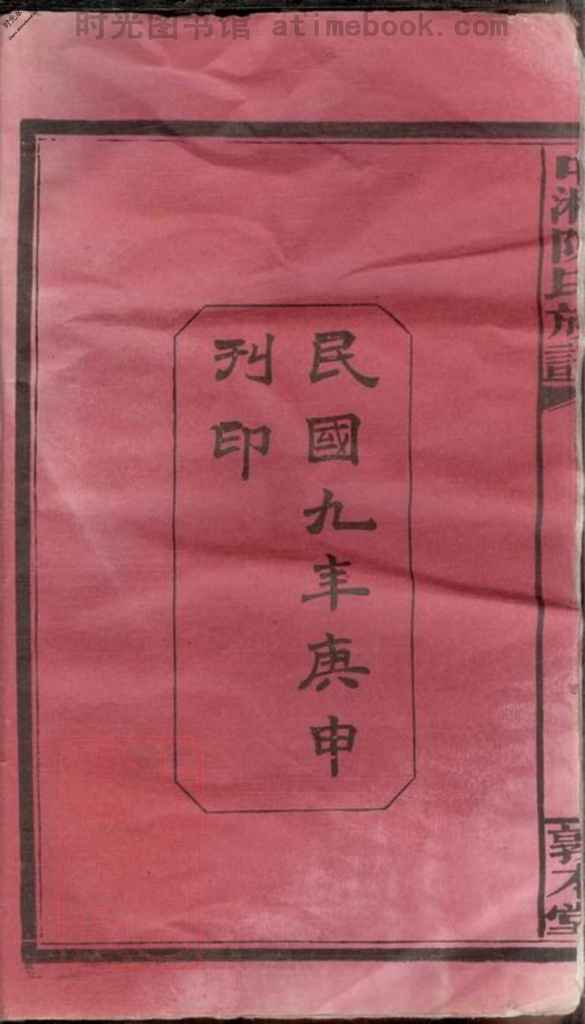 时光图书馆 atimebook.com
民國九年庚申
刊印
中湘陳氏族譜
敦本堂